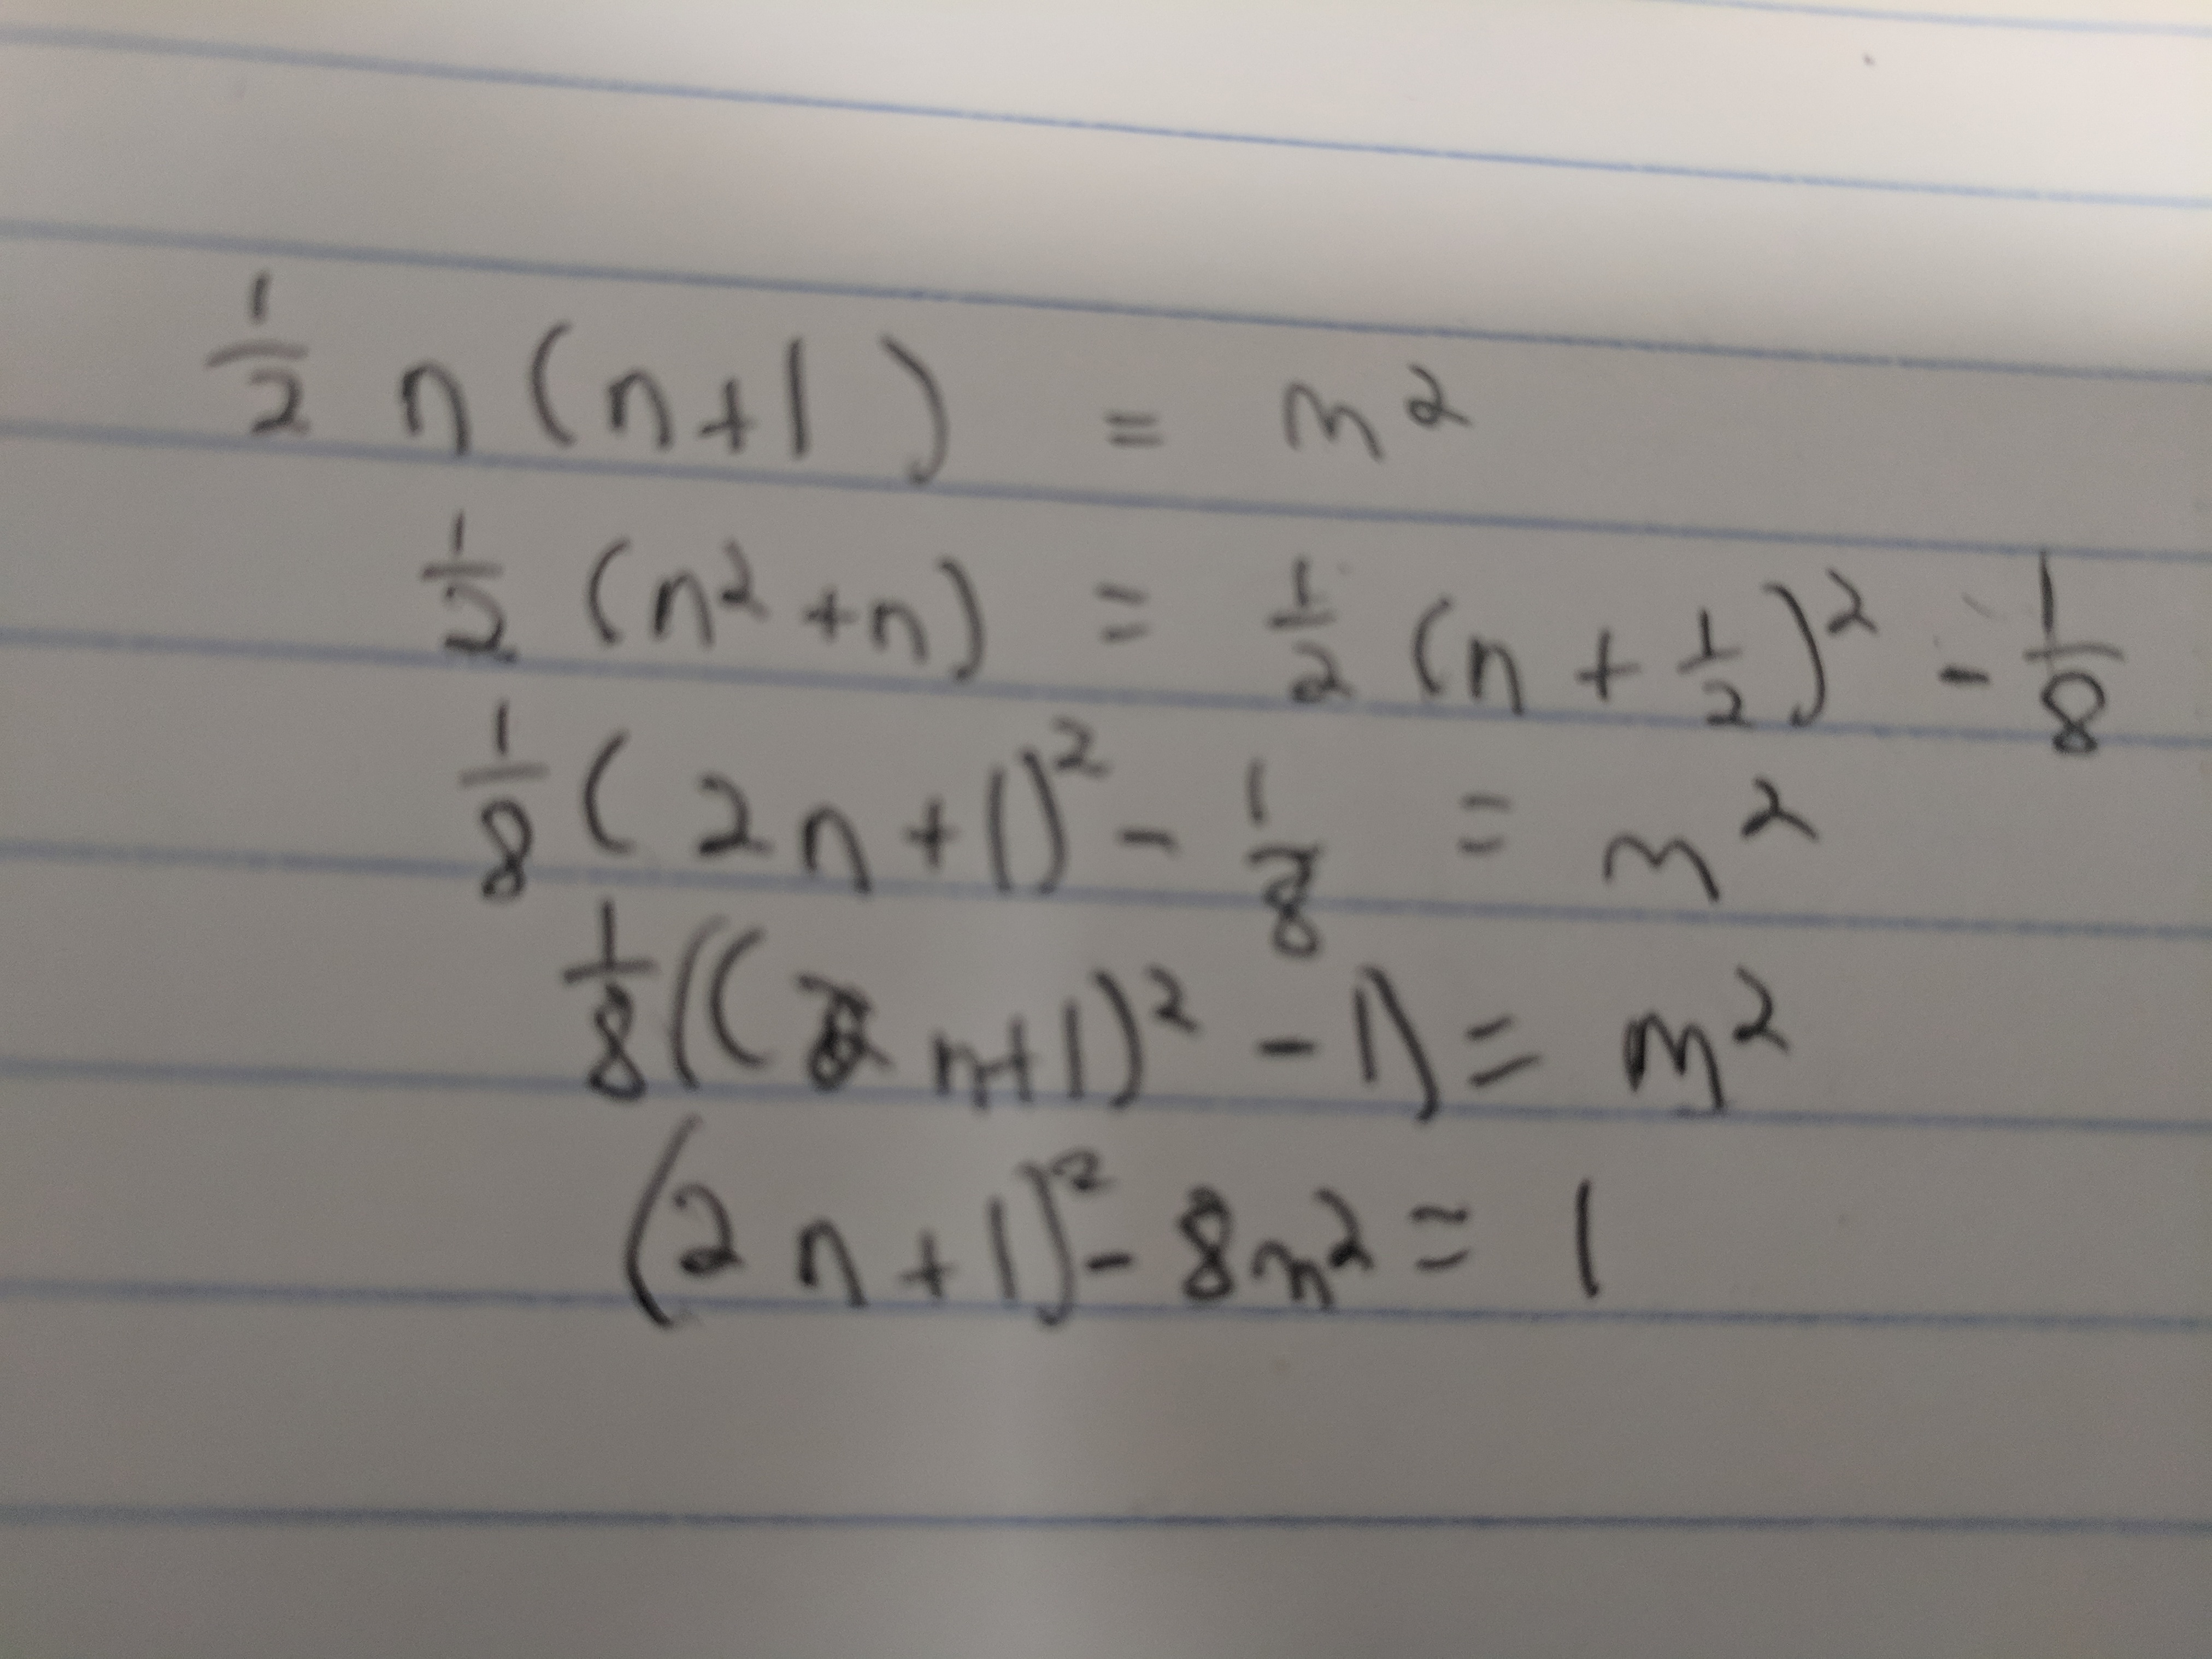 1/2 n(n+1) = m²
1/2 (n²+n) = 1/2 (n + 1/2)² - 1/8
1/8 (2n+1)² - 1/8 = m²
1/8((2n+1)² - 1) = m²
(2n+1)² - 8m² = 1